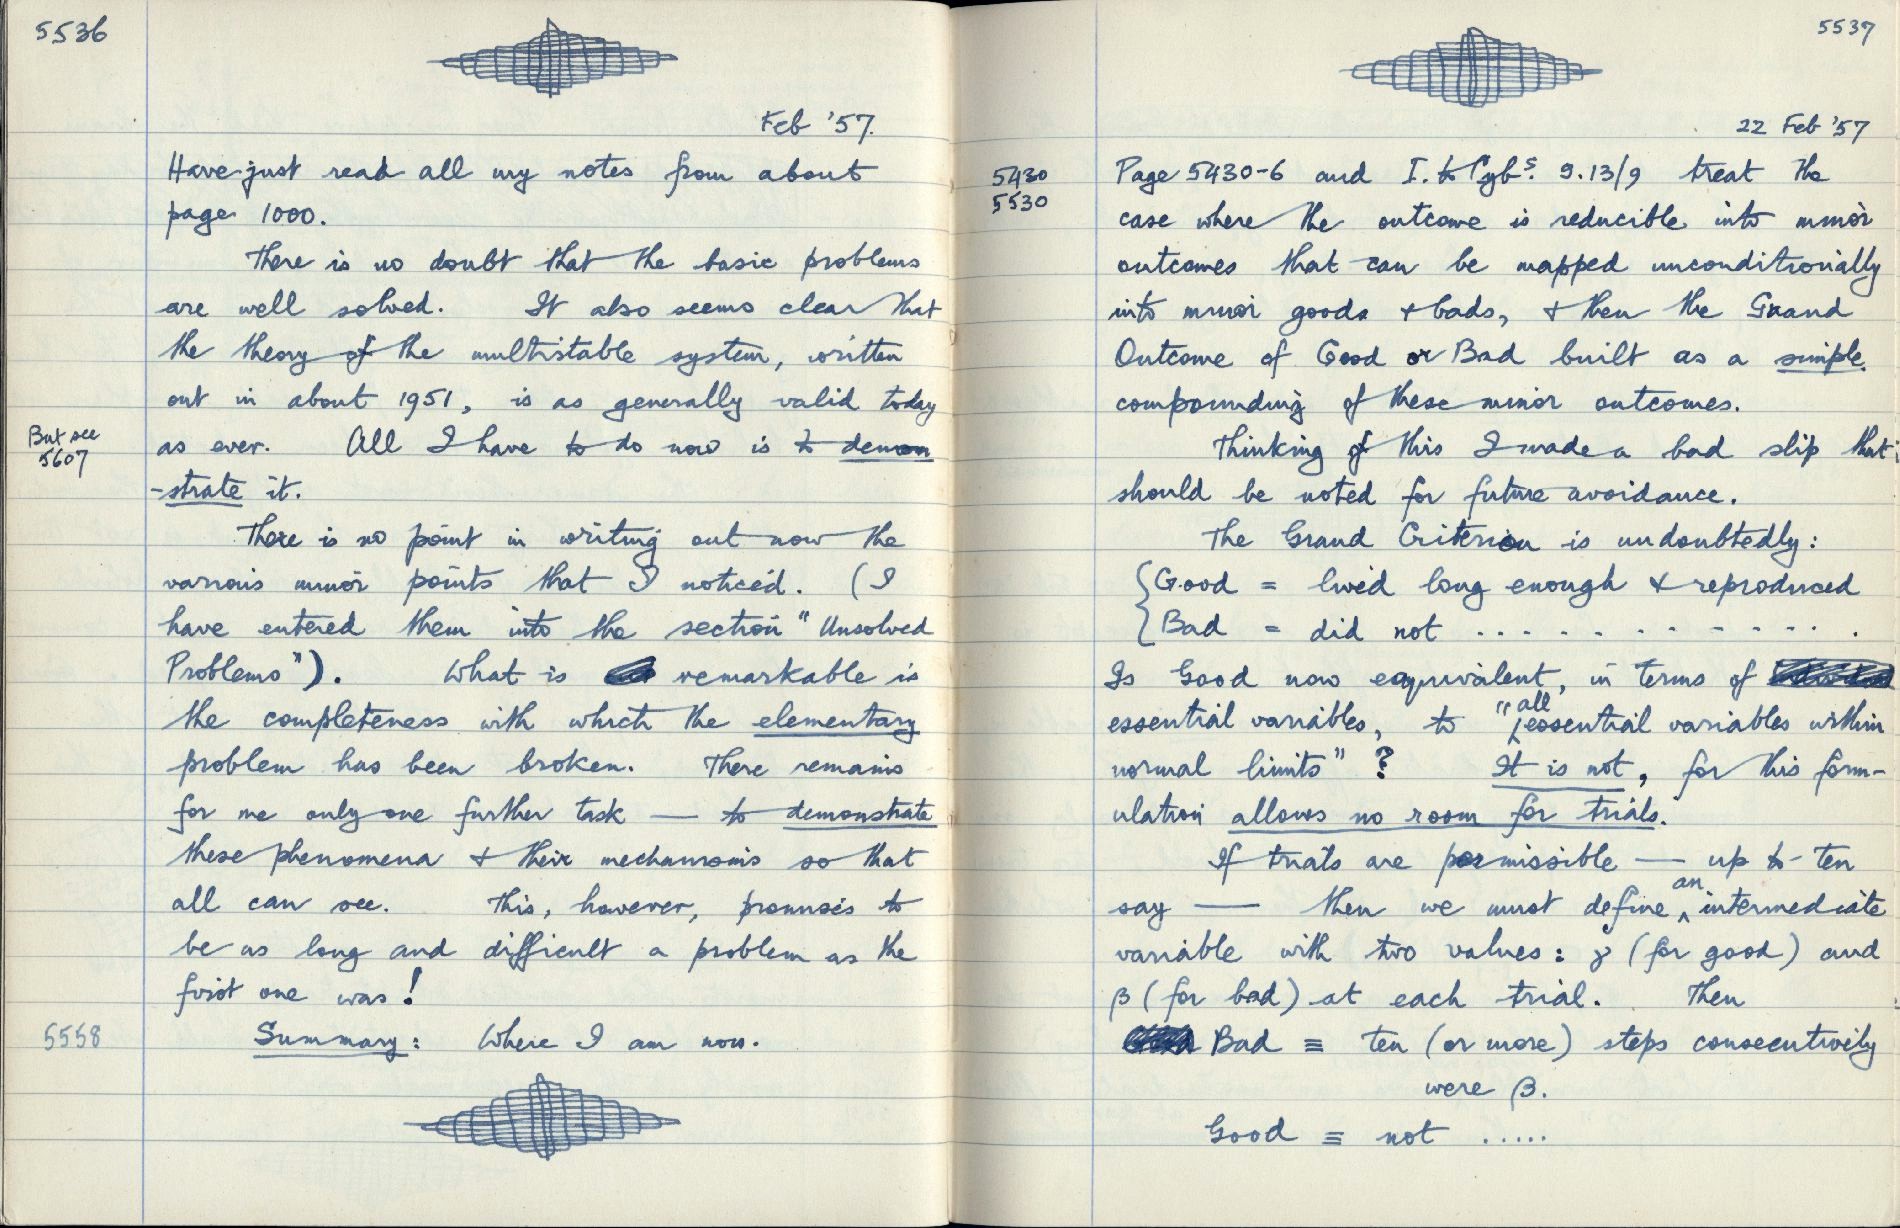 5536
Feb '57.
Have just read all my notes from about
page 1000.
There is no doubt that the basic problems
are well solved. It also seems clear that
the theory of the multistable system, written
out in about 1951, is as generally valid today
But see
5607
as ever. All I have to do now is to demon
-strate it.
There is no point in writing out now the
various minor points that I noticed. (I
have entered them into the section "Unsolved
Problems"). What is remarkable is
the completeness with which the elementary
problem has been broken. There remains
for me only one further task — to demonstrate
these phenomena & their mechanisms so that
all can see. This, however, promises to
be as long and difficult a problem as the
first one was!
5558
Summary: Where I am now.
5537
22 Feb '57
5430
5530
Page 5430-6 and I. to Cybs. 9.13/9 treat the
case where the outcome is reducible into minor
outcomes that can be mapped unconditionally
into minor goods & bads, & then the Grand
Outcome of Good or Bad built as a simple
compounding of these minor outcomes.
Thinking of this I made a bad slip that
should be noted for future avoidance.
The Grand Criterion is undoubtedly:
{Good = lived long enough & reproduced
{Bad = did not . . . . . . . . . . . .
Is Good now equivalent, in terms of
essential variables, to "all essential variables within
normal limits" ? It is not, for this form-
ulation allows no room for trials.
If trials are permissible — up to ten
say — then we must define an intermediate
variable with two values: γ (for good) and
β (for bad) at each trial. Then
Bad ≡ ten (or more) steps consecutively
were β.
Good ≡ not .....